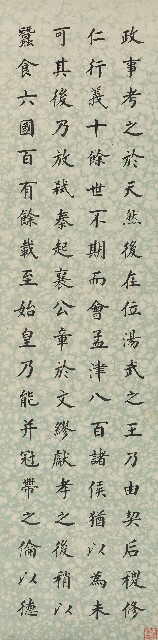 政事考之於天然後在位湯武之王乃由契后稷修
仁行義十餘世不期而會孟津八百諸侯猶以為未
可其後乃放弒秦起襄公章於文繆獻孝之後稍以
蠶食六國百有餘載至始皇乃能并冠帶之倫以德